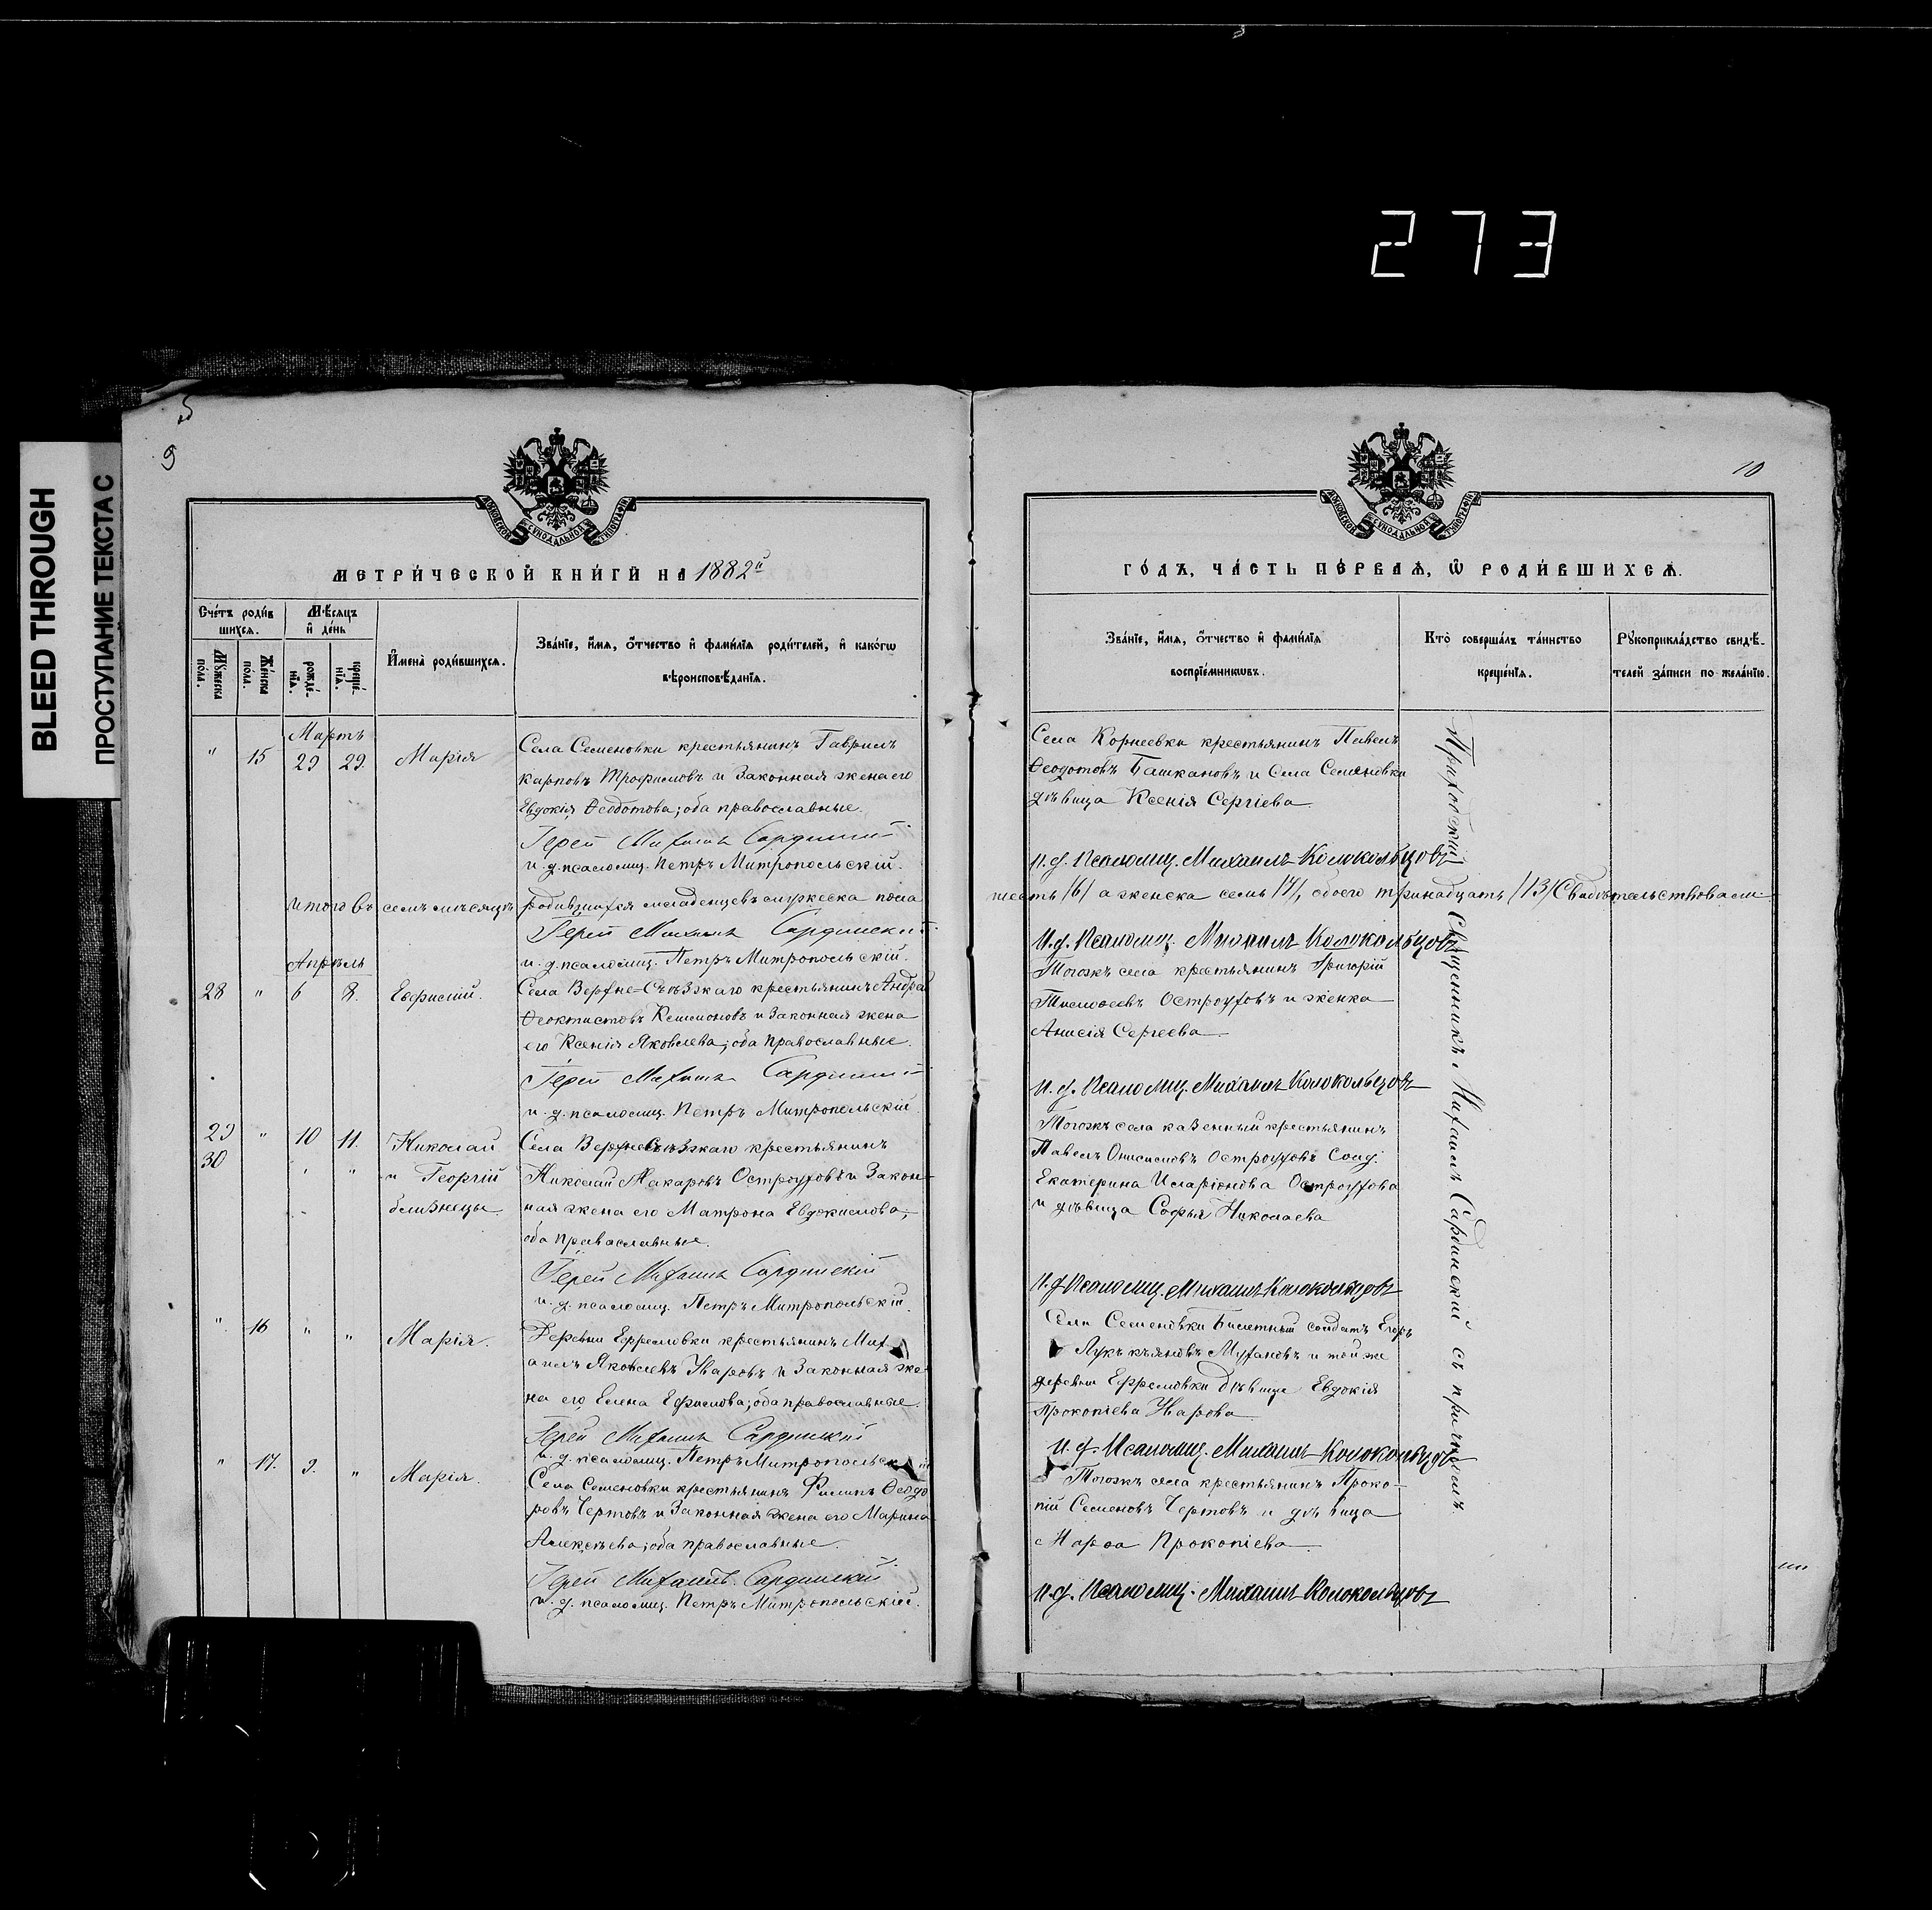 273
BLEED THROUGH
ПРОСТУПАНИЕ ТЕКСТА С
9
МЕТРИ́ЧЕСКОЙ КНИ́ГИ НА 1882й
Сче́тъ роди́вшихся.
Мꙋ́жеска по́ла.
Же́нска по́ла.
Мѣ́сяцъ и де́нь
рожде́нїя.
креще́нїя.
И҆мена̀ роди́вшихся.
Зва́нїе, и҆́мя, ѻ҆́тчество и҆ фами́лїя роди́телей, и҆ како́гѡ вѣроисповѣ́данїя.
Мартъ
" 15 29 29. Марія
Села Семеновки крестьянинъ Гаврилъ
Карповъ Трофимовъ и Законная жена его
Евдокія Ѳеодотова; оба православные.
Іерей Михаилъ Сардинскій
и. д. псаломщ. Петръ Митропольскій.
Итого въ семъ мѣсяцѣ родившихся младенцевъ мужеска пола
Іерей Михаилъ Сардинскій
и. д. псаломщ. Петръ Митропольскій.
Апрѣль
28 " 6 8. Евфимій.
Села Верхне-Съѣзжаго крестьянинъ Андрей
Ѳеоктистовъ и Законная жена
его Ксенія Яковлева; оба православные.
Іерей Михаилъ Сардинскій
и. д. псаломщ. Петръ Митропольскій.
29 " 10 11. Николай
30 " " и Георгій
близнецы.
Села Верхнесъѣзжаго крестьянинъ
Николай Макаровъ Остроуховъ и Закон-
ная жена его Матрона Евдокимова;
оба православные.
Іерей Михаилъ Сардинскій
и. д. псаломщ. Петръ Митропольскій.
" 16 " " Марія.
Деревни Ефремовки крестьянинъ Мих-
аилъ Яковлевъ Уваровъ и Законная же-
на его Елена Ефимова; оба православные.
Іерей Михаилъ Сардинскій
и. д. псаломщ. Петръ Митропольскій
" 17. 9. " Марія.
Села Семеновки крестьянинъ Филипъ Ѳеодо
ровъ Чертовъ и Законная жена его Марина
Алексѣева; оба православные.
Іерей Михаилъ Сардинскій
и. д. псаломщ. Петръ Митропольскій.
10
ГО́ДЪ, ЧА́СТЬ ПЕ́РВАЯ, Ѡ҆ РОДИ́ВШИХСЯ.
Зва́нїе, и҆́мя, ѻ҆́тчество и҆ фами́лїя воспрїе́мникѡвъ.
Кто̀ соверша́лъ та́инство креще́нїя.
Рꙋкоприкла́дство свидѣ́телей за́писи по жела́нїю.
Села Корнеевки крестьянинъ Павелъ
Ѳеодотовъ Башкановъ и Села Семеновки
дѣвица Ксенія Сергіева
И. д. Псаломщ. Михаилъ Колокольцовъ
шесть /6/ а женска семь /7/, обоего тринадцать /13/ Свидѣтельствовали
И. д. Псаломщ. Михаилъ Колокольцовъ
Тогожъ села крестьянинъ Григорій
Тимофеевъ Остроуховъ и женка
Анисія Сергеева
И. д. Псаломщ. Михаилъ Колокольцовъ
Тогожъ села казенный крестьянинъ
Павелъ Онисимовъ Остроуховъ Солд.
Екатерина Иларіонова Остроухова
и дѣвица Софья Николаева
И. д. Псаломщ. Михаилъ Колокольцовъ
Села Семеновки Билетный солдатъ Егоръ
Лукъяновъ Мухановъ и той же
деревни Ефремовки дѣвица Евдокія
Прокопіева Уварова
И. д. Псаломщ. Михаилъ Колокольцовъ
Тогожъ села крестьянинъ Проко-
пій Семеновъ Чертовъ и дѣвица
Марѳа Прокопіева
И. д. Псаломщ. Михаилъ Колокольцовъ
Приходскій Священникъ Михаилъ Сардинскій съ причтомъ.